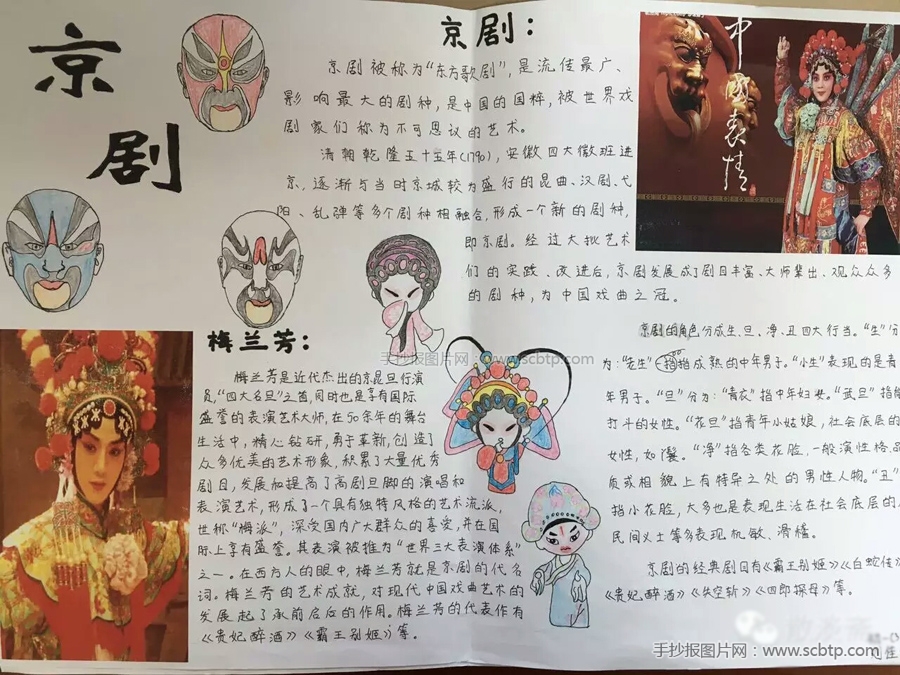 京
剧
京剧：
京剧被称为“东方歌剧”，是流传最广、
影响最大的剧种，是中国的国粹，被世界戏
剧家们称为不可思议的艺术。
清朝乾隆五十五年(1790)，安徽四大徽班进
京，逐渐与当时京城较为盛行的昆曲、汉剧、弋
阳、乱弹等多个剧种相融合，形成一个新的剧种，
即京剧。经过大批艺术
们的实践、改进后，京剧发展成了剧目丰富、大师辈出、观众众多
的剧种，为中国戏曲之冠。
京剧的角色分成生、旦、净、丑四大行当。“生”分
为：“老生”指成熟的中年男子。“小生”表现的是青
年男子。“旦”分为：“青衣”指中年妇女。“武旦”指能
打斗的女性。“花旦”指青年小姑娘，社会底层的
女性，如 。“净”指各类花脸，一般演性格、品
质或相貌上有特异之处的男性人物。“丑”
指小花脸，大多也是表现生活在社会底层的人
民间义士等多表现机敏、滑稽。
京剧的经典剧目有《霸王别姬》《白蛇传》
《贵妃醉酒》《失空斩》《四郎探母》等。
梅兰芳：
梅兰芳是近代杰出的京昆旦行演
员，“四大名旦”之首，同时也是享有国际
盛誉的表演艺术大师，在50余年的舞台
生活中，精心钻研，勇于革新，创造了
众多优美的艺术形象，积累了大量优秀
剧目，发展和提高了高剧旦脚的演唱和
表演艺术，形成了一个具有独特风格的艺术流派，
世称“梅派”，深受国内广大群众的喜爱，并在国
际上享有盛誉。其表演被推为“世界三大表演体系”
之一。在西方人的眼中，梅兰芳就是京剧的代名
词。梅兰芳的艺术成就，对现代中国戏曲艺术的
发展起了承前启后的作用。梅兰芳的代表作有
《贵妃醉酒》《霸王别姬》等。
中国表情
手抄报图片网：www.scbtp.com
手抄报图片网：www.scbtp.com